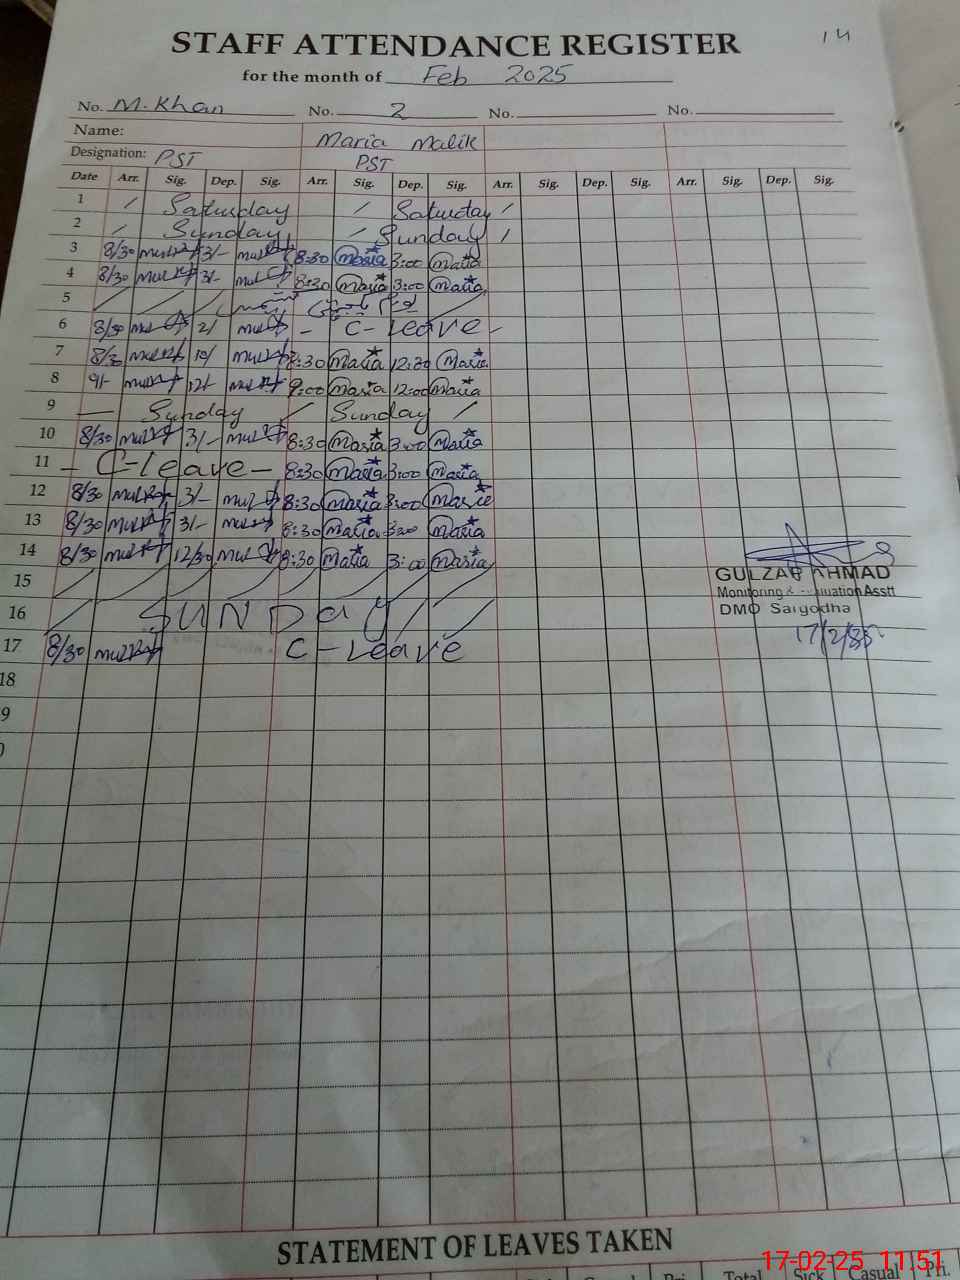 14
STAFF ATTENDANCE REGISTER
for the month of Feb 2025
No. M. Khan No. 2 No. No.
Name: Maria Malik
Designation: PST PST
Date Arr. Sig. Dep. Sig. Arr. Sig. Dep. Sig. Arr. Sig. Dep. Sig. Arr. Sig. Dep. Sig.
1 Saturday Saturday
2 Sunday Sunday
3 8/30 3/- 8:30 Maria 3:00 Maria
4 8/30 3/- 8:30 Maria 3:00 Maria
5
6 8/30 2/ - C-leave -
7 8/30 10/ 8:30 Maria 12:30 Maria
8 9/- 12/- 9:00 Maria 12:00 Maria
9 Sunday Sunday
10 8/30 3/- 8:30 Maria 3:00 Maria
11 - C-leave - 8:30 Maria 3:00 Maria
12 8/30 3/- 8:30 Maria 3:00 Maria
13 8/30 3/- 8:30 Maria 3:00 Maria
14 8/30 12/30 8:30 Maria 3:00 Maria
15
16 SUNDay
17 8/30 C-Leave
18
9
0
GULZAR AHMAD
Monitoring & Evaluation Asstt
DMO Sargodha
STATEMENT OF LEAVES TAKEN
Total Sick Casual Pri.
17-02-25 11:51